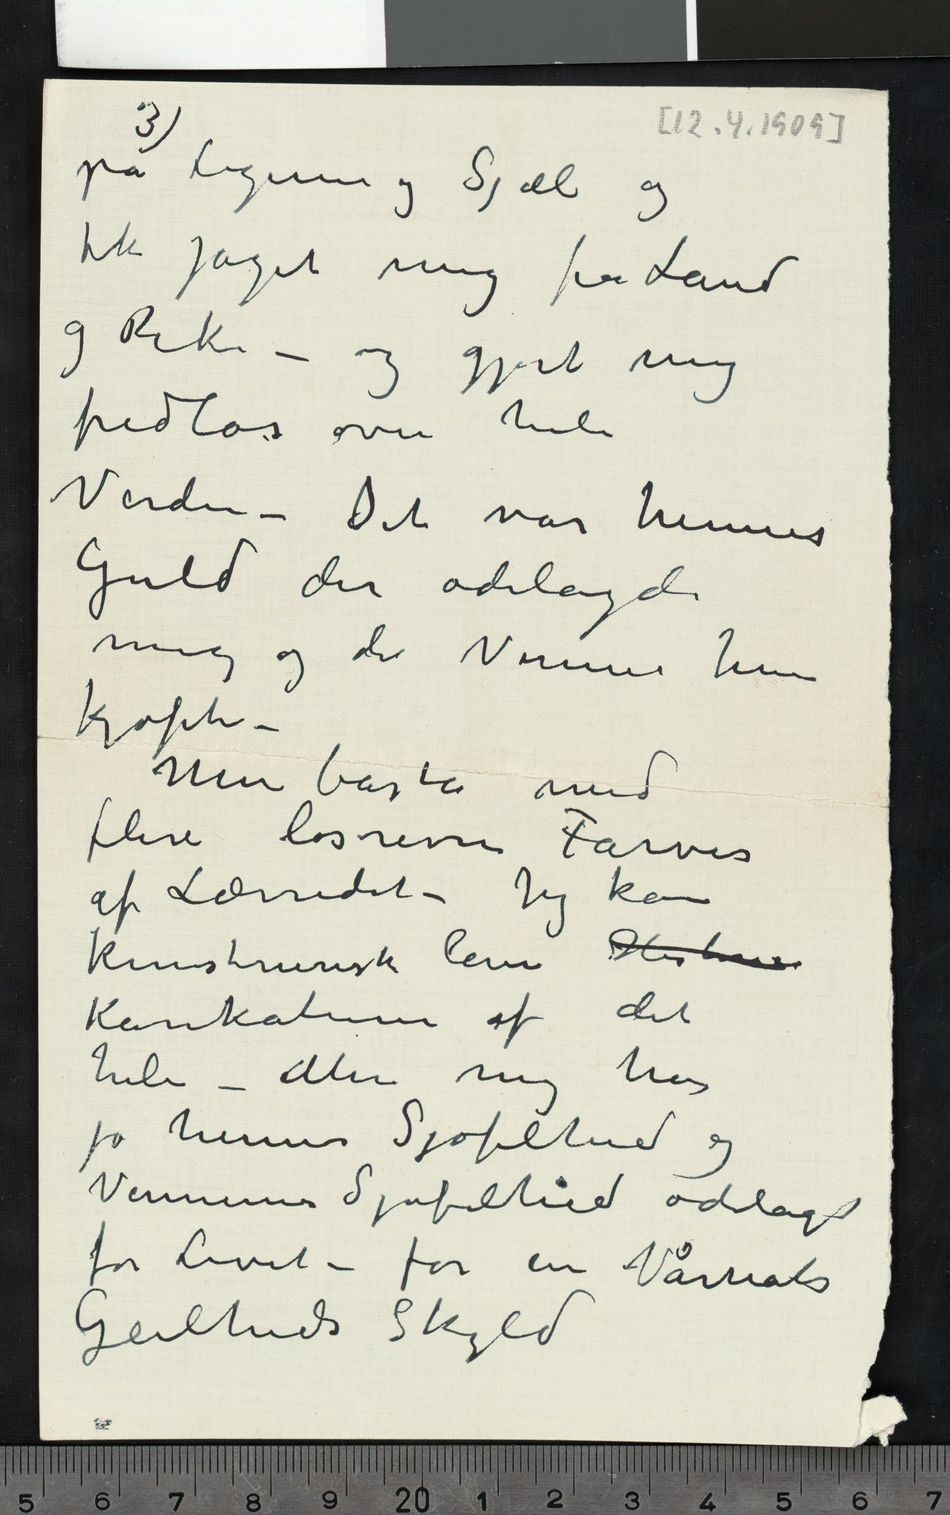 3)
[12.4.1909]
på Legeme og Sjæl og
fik jaget mig fra Land
og Rike – og gjort mig
fredløs over hele
Verden – Det var hennes
Guld der ødelagde
mig og de Venner hun
kjøpte –
Men basta med
flere løsrevne Farver
af Lærredet – Jeg kan
kunstnerisk lave
Karikaturer af det
hele – Men mig har
jo hennes Sjofelhed og
Vennernes Sjofelhed ødelagt
for Livet – for en Vårnats
Geilheds Skyld
5 6 7 8 9 20 1 2 3 4 5 6 7